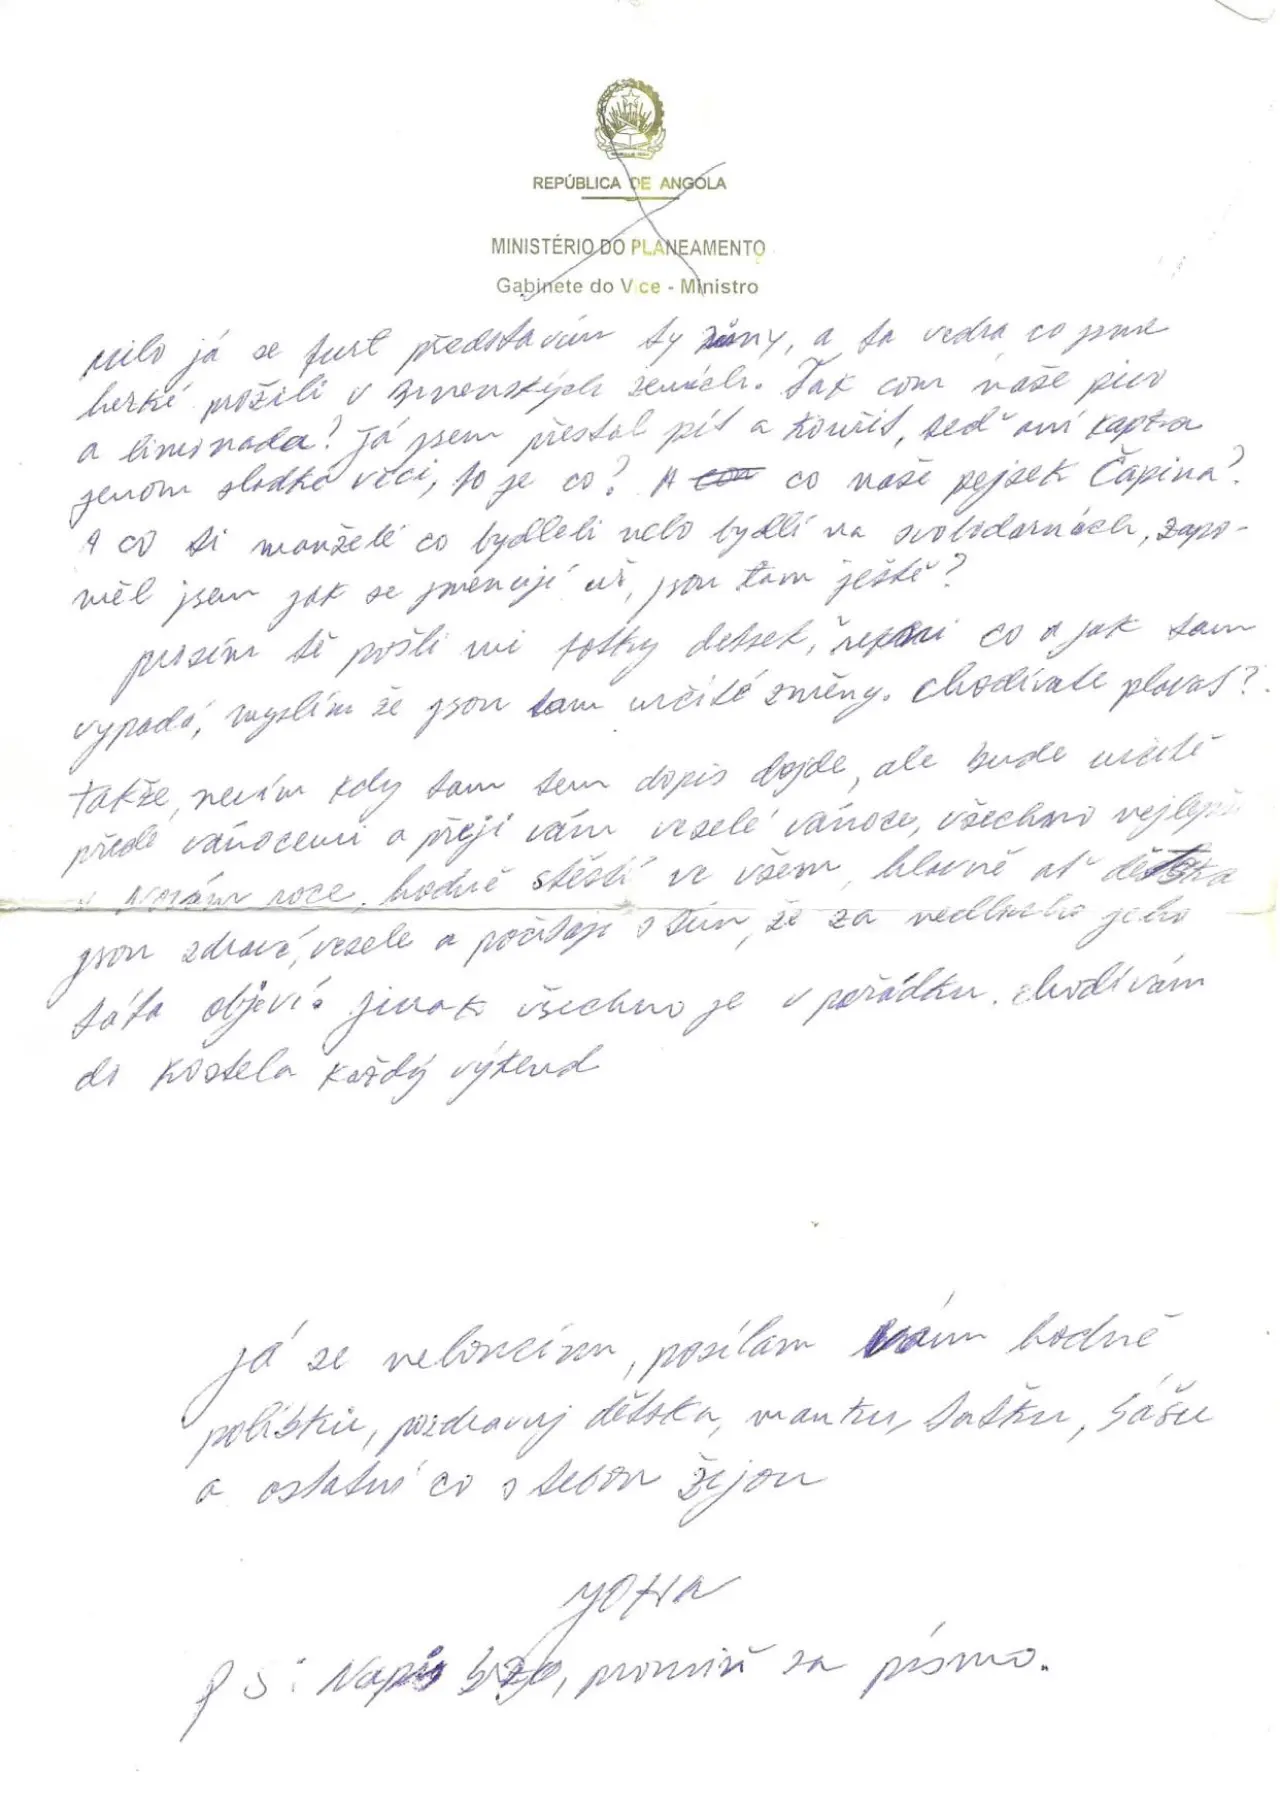 REPÚBLICA DE ANGOLA
MINISTÉRIO DO PLANEAMENTO
Gabinete do Vice - Ministro
já se furt představám ty zimy, a ta vedra co jsme
hezké prožili v brnenských zemích. Tak com naše pivo
a limonada? Já jsem přestal pít a kouřit, teď ani kapka
jenom sladké věci, to je co? A co naše pejsek Čapina?
A co ti manželé co bydleli nebo bydlí na svobodarnách, zapo-
měl jsem jak se jmenují už, jsou tam ještě?
prosím tě pošli mi fotky dětsek, co a jak tam
vypadá, myslím že jsou tam určité změny. chodíváte plavat?
takže, nevím kdy tam ten dopis dojde, ale bude určitě
předě vánocemi a přeji vám veselé vánoce, všechno nejlepší
v Novám roce, hodně stěstí ve všem, hlavně ať dětska
jsou zdravé, vesele a počitaji s tím, že za nedlouho jeho
táta objeví. jinak všechno je v pořádku. chodívám
do kostela každý výkend
já se neloučím, posílam vám hodně
polibku, pozdravuj dětska, mamku, tatku, Sášu
a ostatní co s tebou žijou
P S: Napiš brzo, promiň za písmo.